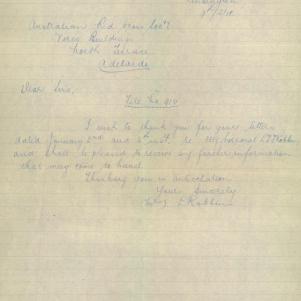 Australian Red Cross Soc'y
Verco Building
North Terrace
Adelaide
Dear Sirs,
File No 410
I wish to thank you for your letters
dated January 2nd and 5th inst. re
and shall be pleased to receive any further information
that may come to hand.
Thanking you in anticipation
Yours Sincerely
Robbins